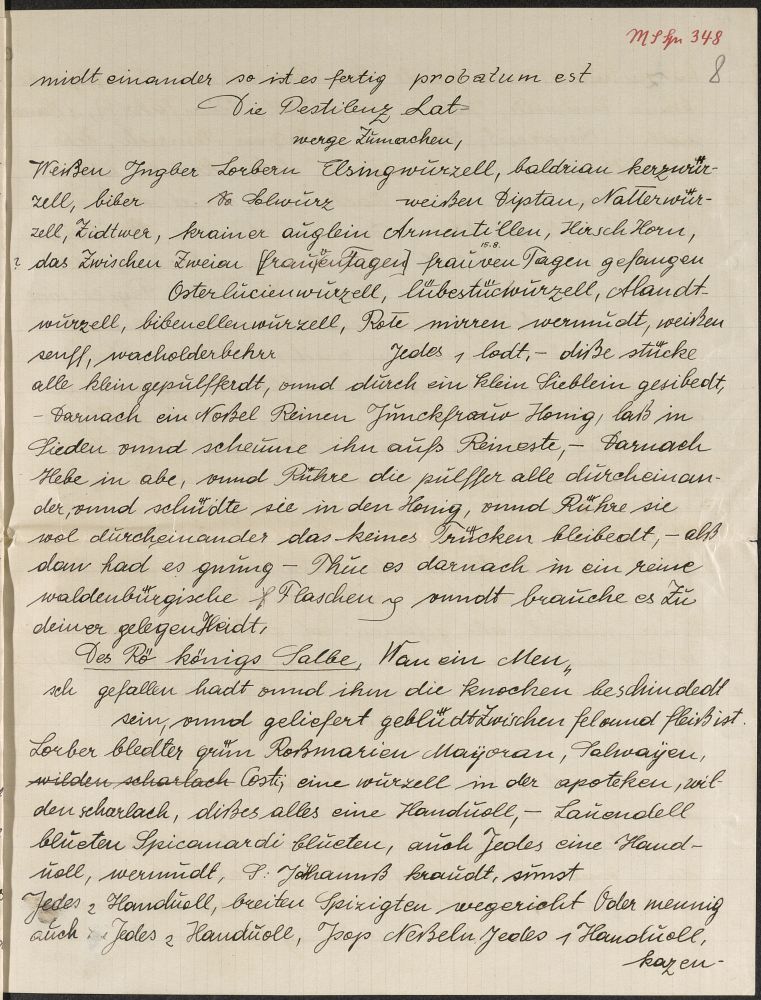 MS fpn 348
8
midt einander so ist es fertig probatum est
Die Pestilenz Lat=
werge Zumachen,
Weißen Jngber Lorbern Elsingwürzell, baldrian kerzwür-
zell, biber So Holwurz weißen Diptan, Natterwür-
zell, Zidtwer, krainer aüglein Armentillen, Hirsch Horn,
15.8.
? das Zwischen Zweien [fraüenTagen] fraüven Tagen gefangen
Osterlucienwürzell, lübestücwürzell, Alandt-
würzell, bibenellenwürzell, Rote mirren wermüdt, weißen
senff, wacholderbehrr Jedes 1 lodt,- diße stücke
alle klein gepülfferdt, vnnd dürch ein klein Sieblein gesibedt,
- Darnach ein Noßel Reinen Junckfrauw Honig, laß in
Sieden vnnd scheüme ihn aufs Reineste,- Darnach
Hebe in abe, vnnd Rühre die pülffer alle dürcheinan-
der, vnnd schüdte sie in den Honig, vnnd Rühre sie
wol dürcheinander das keines Trücken bleibedt,- alß
dan had es gnüng - Thüe es darnach in ein reine
waldenbürgische Flaschen vnndt braüche es Zü
deiner gelegenHeidt,
Des Rö königs Salbe, Wan ein Men„
sch gefallen hadt vnnd ihm die knochen beschindedt
sein, vnnd geliefert geblüdt Zwischen fel vnnd fleiß ist.
Lorber bledter grün Roßmarien Mayoran, Salwayen,
wilden scharlach Costi, eine würzell in der apoteken, wil-
den scharlach, dißes alles eine Handüoll,- Lauendell
blüeten Spicanardi blüeten, auch Jedes eine Hand-
üoll, wermüdt, S: Johannß kraudt, sünst
Jedes 2 Handüoll, breiten Spizigten wegericht Oder mennig
auch Jedes 2 Handüoll, Jsop Neßeln Jedes 1 Handüoll,
kazen-